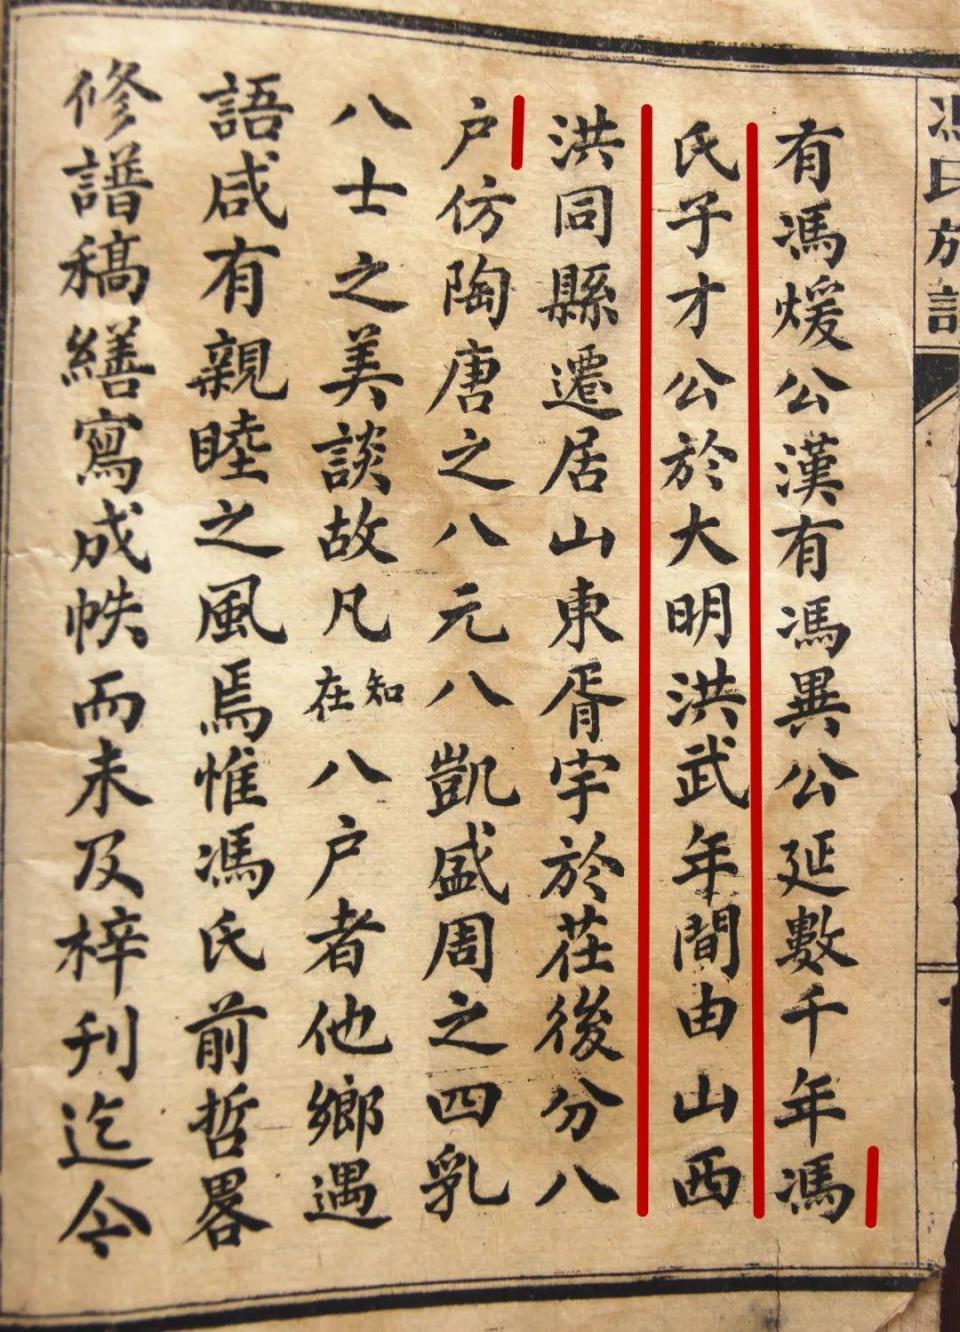 馮氏族譜
有馮煖公漢有馮異公延數千年馮
氏子才公於大明洪武年間由山西
洪同縣遷居山東胥宇於茌後分八
户仿陶唐之八元八凱盛周之四乳
八士之美談故凡知在八户者他鄉遇
語咸有親睦之風焉惟馮氏前哲畧
修譜稿繕寫成帙而未及梓刊迄今